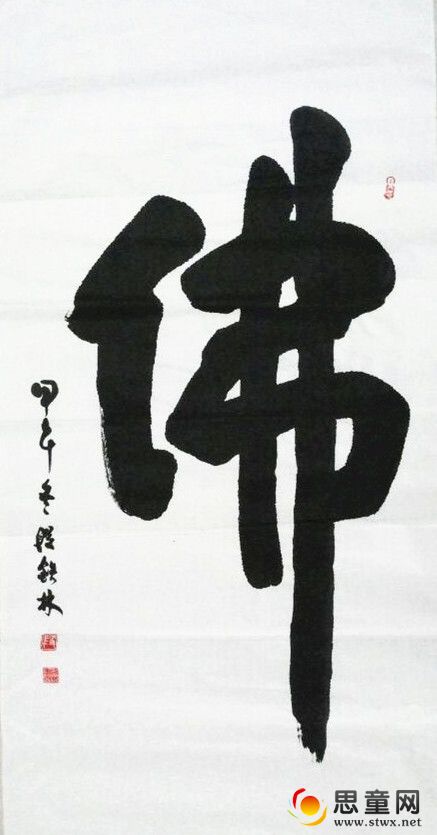 佛
甲午冬段铁林
思童网
www.stwx.net